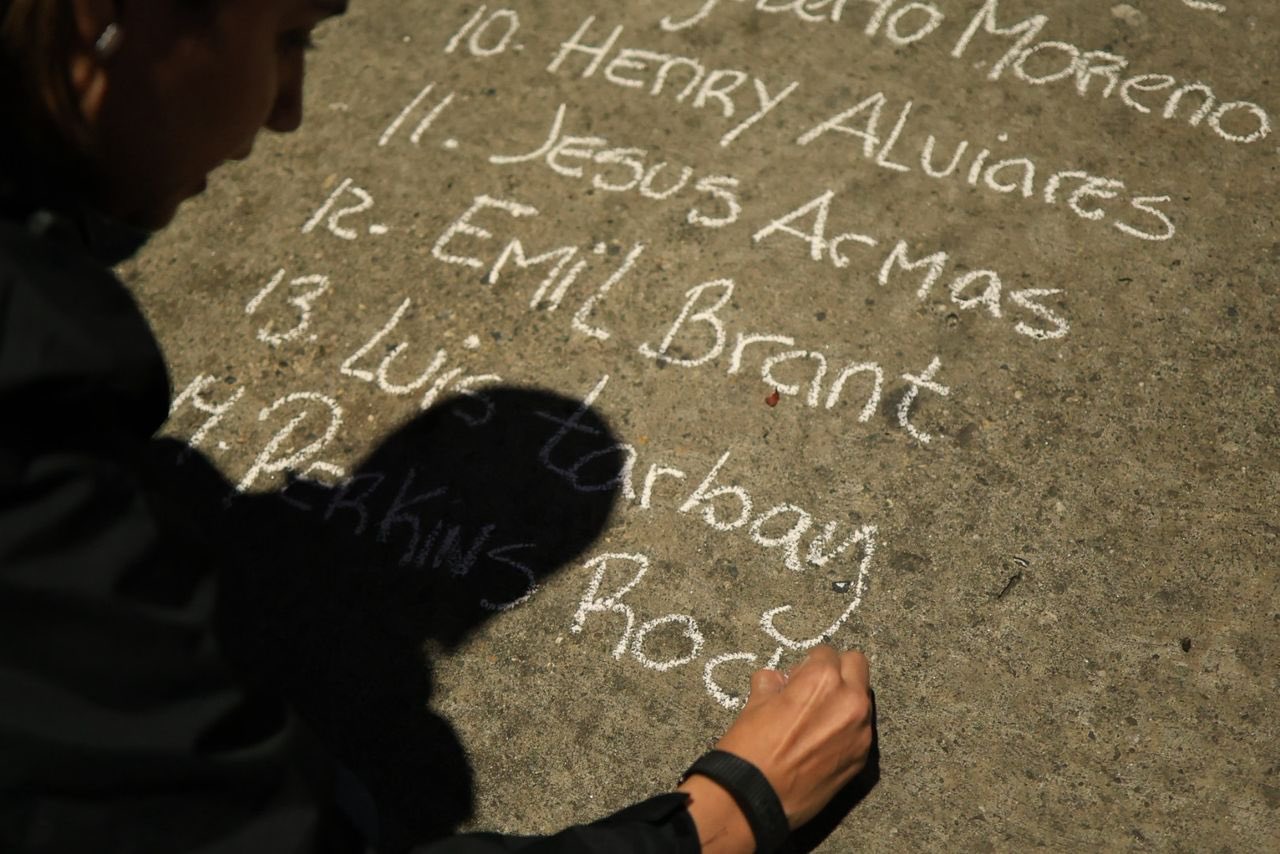 Moreno
10. HENRY ALviares
11. Jesus Armas
12- EMiL Brant
13. Luis tarbay
14. PERKINS Roc